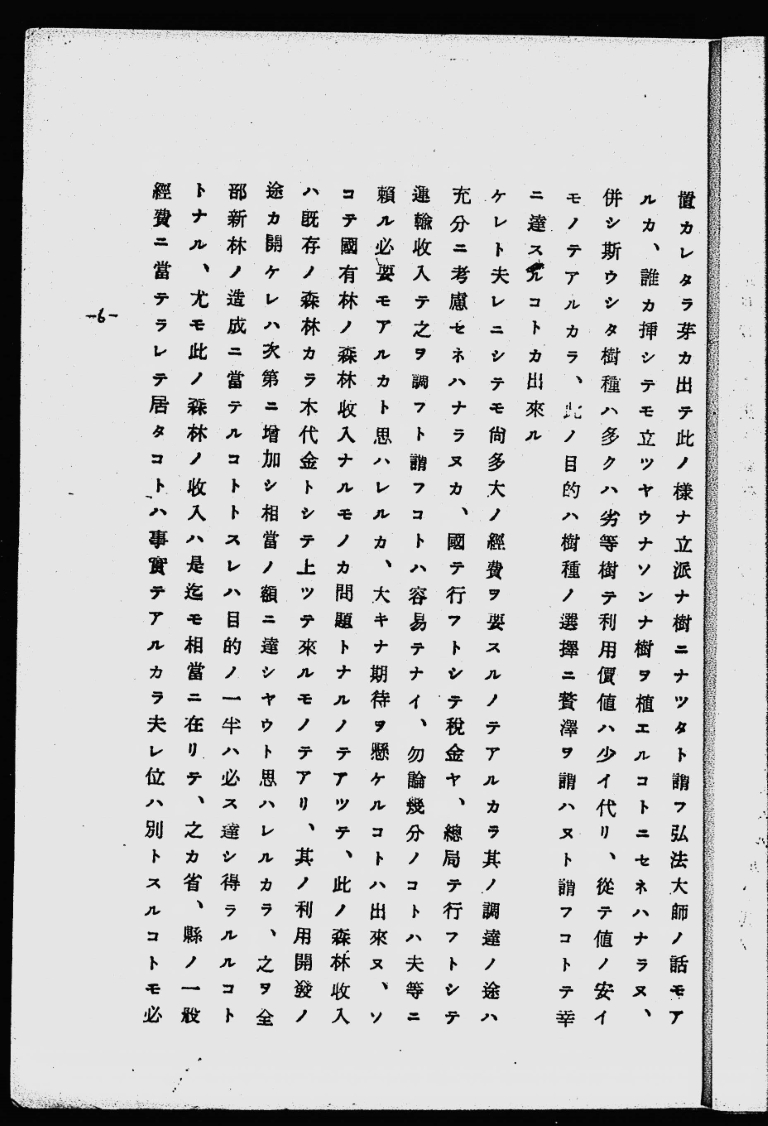 置カレタラ芽カ出テ此ノ樣ナ立派ナ樹ニナツタト謂フ弘法大師ノ話モア
ルカ、誰カ揷シテモ立ツヤウナソンナ樹ヲ植エルコトニセネハナラヌ、
併シ斯ウシタ樹種ハ多クハ劣等樹テ利用價値ハ少イ代リ、從テ値ノ安イ
モノテアルカラ、此ノ目的ハ樹種ノ選擇ニ贅澤ヲ謂ハヌト謂フコトテ幸
ニ達スルコトカ出來ル
ケレト夫レニシテモ尙多大ノ經費ヲ要スルノテアルカラ其ノ調達ノ途ハ
充分ニ考慮セネハナラヌカ、國テ行フトシテ稅金ヤ、總局テ行フトシテ
運輸收入テ之ヲ調フト謂フコトハ容易テナイ、勿論幾分ノコトハ夫等ニ
賴ル必要モアルカト思ハレルカ、大キナ期待ヲ懸ケルコトハ出來ヌ、ソ
コテ國有林ノ森林收入ナルモノカ問題トナルノテアツテ、此ノ森林收入
ハ既存ノ森林カラ木代金トシテ上ツテ來ルモノテアリ、其ノ利用開發ノ
途カ開ケレハ次第ニ增加シ相當ノ額ニ達シヤウト思ハレルカラ、之ヲ全
部新林ノ造成ニ當テルコトトスレハ目的ノ一半ハ必ス達シ得ラルルコト
トナル、尤モ此ノ森林ノ收入ハ是迄モ相當ニ在リテ、之カ省、縣ノ一般
經費ニ當テラレテ居タコトハ事實テアルカラ夫レ位ハ別トスルコトモ必
-6-